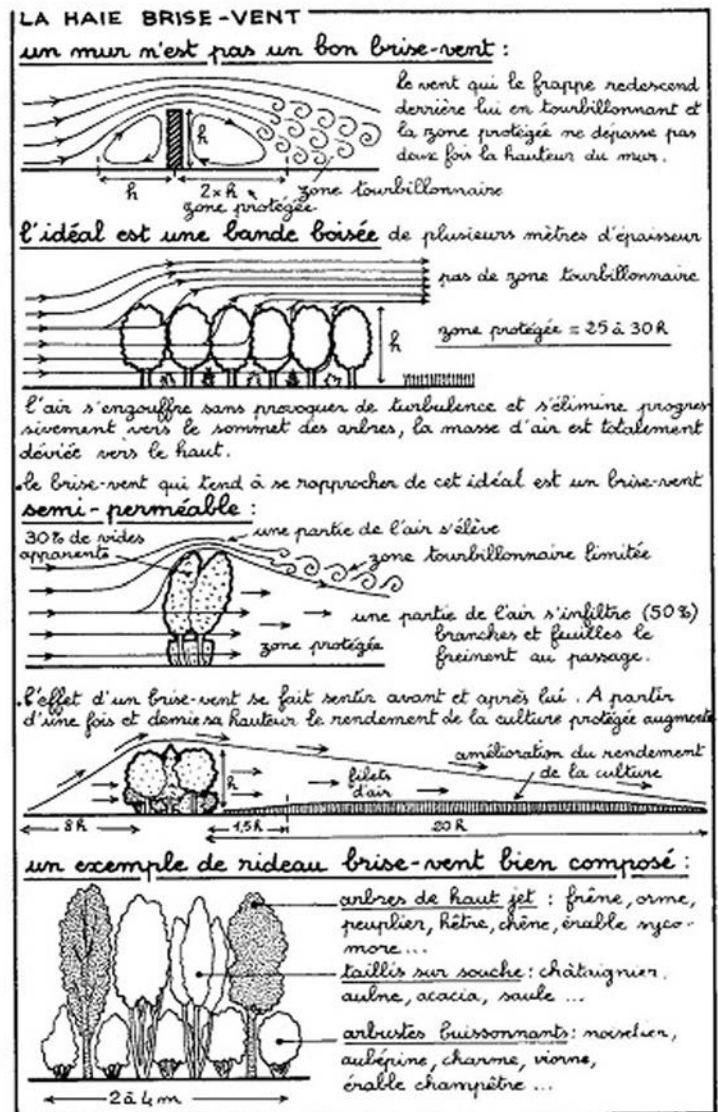 LA HAIE BRISE-VENT
un mur n'est pas un bon brise-vent :
le vent qui le frappe redescend
derrière lui en tourbillonnant et
la zone protégée ne dépasse pas
deux fois la hauteur du mur.
h
h
2 x h
zone protégée
zone tourbillonnaire
l'idéal est une bande boisée de plusieurs mètres d'épaisseur
pas de zone tourbillonnaire
h
zone protégée = 25 à 30 h
l'air s'engouffre sans provoquer de turbulence et s'élimine progres
sivement vers le sommet des arbres, la masse d'air est totalement
déviée vers le haut.
.le brise-vent qui tend à se rapprocher de cet idéal est un brise-vent
semi-perméable :
30% de vides
apparents
une partie de l'air s'élève
zone tourbillonnaire limitée
une partie de l'air s'infiltre (50%)
branches et feuilles le
freinent au passage.
zone protégée
.l'effet d'un brise-vent se fait sentir avant et après lui. A partir
d'une fois et demie sa hauteur le rendement de la culture protégée augmente
amélioration du rendement
de la culture
h
filets
d'air
8h
1,5h
20h
un exemple de rideau brise-vent bien composé :
arbres de haut jet : frêne, orme,
peuplier, hêtre, chêne, érable syco-
more ...
taillis sur souche : châtaignier,
aulne, acacia, saule ...
arbustes buissonnants : noisetier,
aubépine, charme, viorne,
érable champêtre ...
2 à 4 m